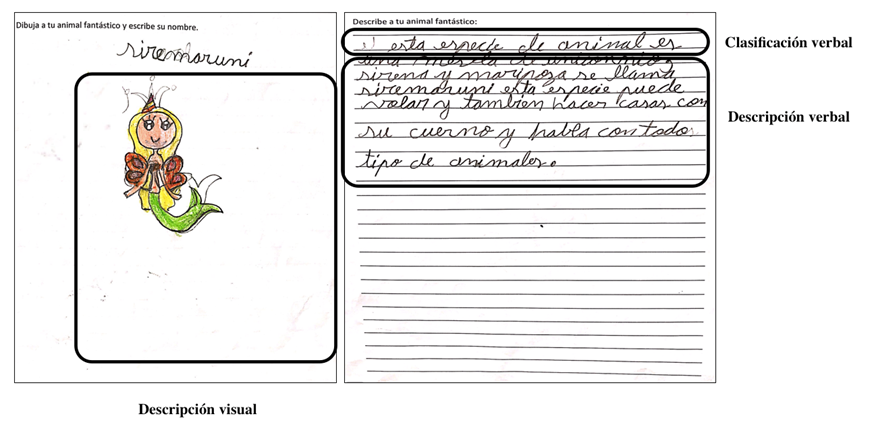 Dibuja a tu animal fantástico y escribe su nombre.
siremaruni
Descripción visual
Describe a tu animal fantástico:
esta especie de animal es
una mescla de unicornio
sirena y mariposa se llama
siremaruni esta especie puede
volar y tambien hacer casas con
su cuerno y habla con todo
tipo de animales.
Clasificación verbal
Descripción verbal